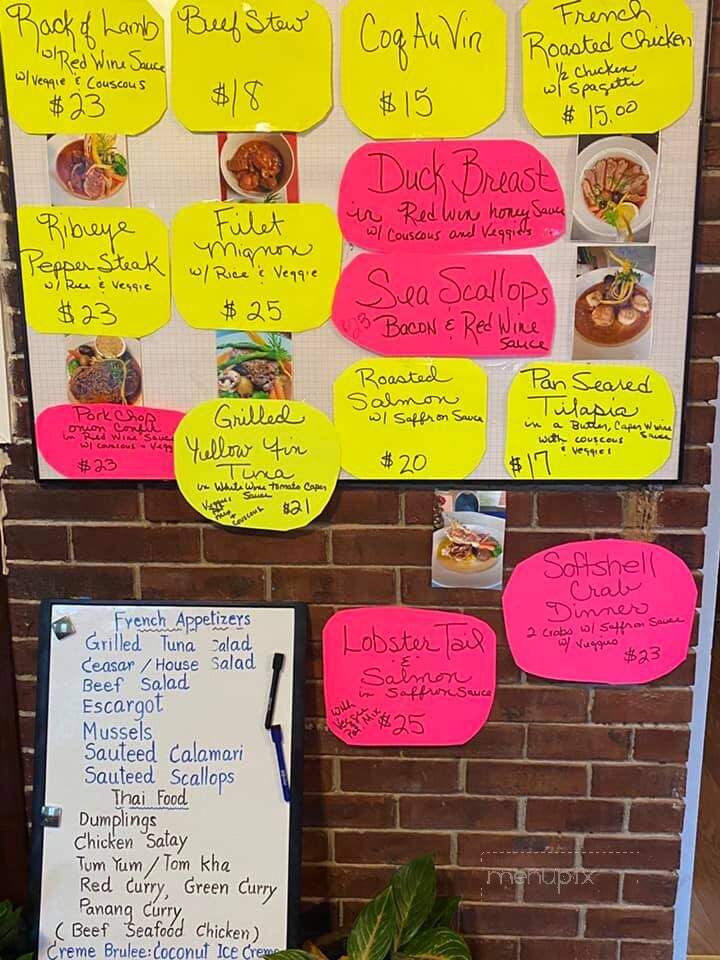 Rack of Lamb
w/ Red Wine Sauce
w/ Veggie & Couscous
$23
Beef Stew
$18
Coq Au Vin
$15
French
Roasted Chicken
1/2 Chicken
w/ Spagetti
$15.00
Duck Breast
in Red Wine honey Sauce
w/ Couscous and Veggies
Ribieye
Pepper Steak
w/ Rice & Veggie
$23
Filet
Mignon
w/ Rice & Veggie
$25
Sea Scallops
$23 Bacon & Red Wine
Sauce
Pork Chop
onion Confit
in Red Wine Sauce
w/ couscous + Vegg
$23
Grilled
Yellow Fin
Tuna
in White Wine Tomato Caper
Sauce
Veggies
+ couscous
$21
Roasted
Salmon
w/ Saffron Sauce
$20
Pan Seared
Tilapia
in a Butter, Caper Wine
Sauce
with couscous
& Veggies
$17
Softshell
Crab
Dinner
2 Crabs w/ Saffron Sauce
w/ Veggies
$23
Lobster Tail
&
Salmon
in Saffron Sauce
with
$25
French Appetizers
Grilled Tuna Salad
Ceasar / House Salad
Beef Salad
Escargot
Mussels
Sauteed Calamari
Sauteed Scallops
Thai Food
Dumplings
Chicken Satay
Tum Yum / Tom Kha
Red Curry, Green Curry
Panang Curry
( Beef Seafood Chicken)
Creme Brulee: Coconut Ice Creme
menupix